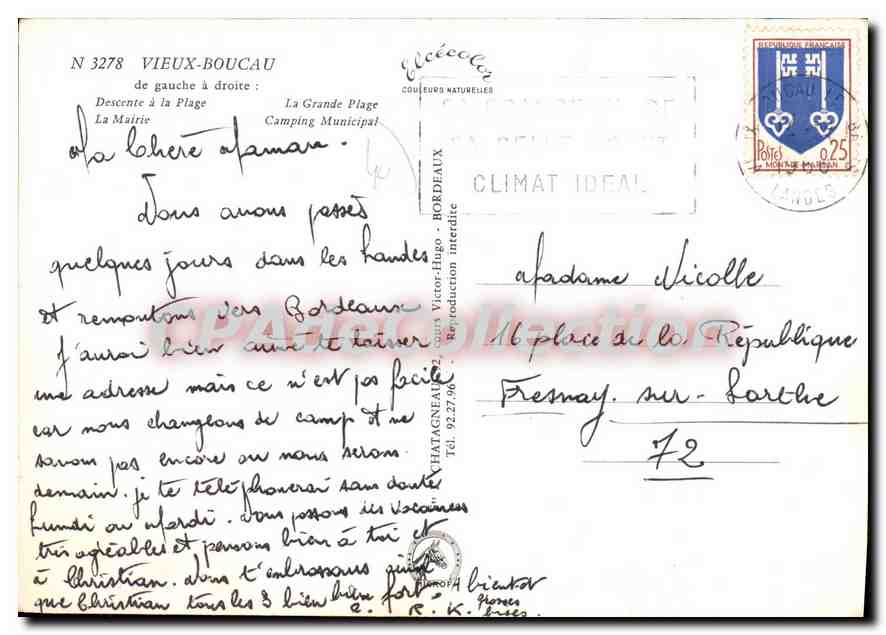 N 3278 VIEUX-BOUCAU
de gauche à droite :
Descente à la Plage La Grande Plage
La Mairie Camping Municipal
Elcécolor
COULEURS NATURELLES
CLIMAT IDEAL
REPUBLIQUE FRANÇAISE
POSTES 0,25
MONT-DE-MARSAN
LANDES
Ma Chère Maman.
Nous avons passés
quelques jours dans les Landes
et remontons vers Bordeaux
J'aurai bien aimé te laisser
une adresse mais ce n'est pas facile
car nous changeons de camp et ne
savons pas encore ou nous serons
demain. je te téléphonerai sans doute
Lundi ou Mardi. Nous passons des vacances
très agréables et pensons bien à toi et
à Christian. Nous t'embrassons ainsi
que Christian tous les 3 bien bien fort.
A bientot
grosses
bises.
R. K.
CHATAGNEAU, cours Victor-Hugo - BORDEAUX
Tél. 92.27.96 - Reproduction interdite
Madame Nicolle
16 place de la République
Fresnay. sur - Sarthe
72
CPAdeCollection